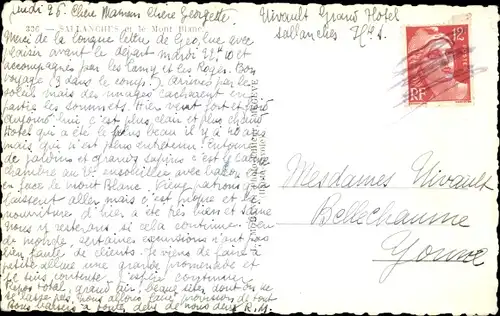 Jeudi 26. Chère Maman Chère Georgette.
336 - SALLANCHES et le Mont Blanc
Merci de la longue lettre de Geo lue avec
plaisir avant le départ mardi 22h10 et
accompagnés par les Lamy et les Roges. Bon
voyage. Arrivée par le
soleil mais des nuages cachaient en
partie les sommets. Hier vent fort et froid
aujourd'hui c'est plus clair et plus chaud
Hotel qui a été le plus beau il y a 40 ans
mais qui n'est plus entretenu. Entouré
de jardins et grands sapins c'est
chambre au 1er ensoleillée avec balcon
en face le mont Blanc.
laissent aller mais c'est propre et la
nourriture d'hier a été très bien et saine
nous y resterons si cela continue
de monde, certaines excursions n'ont pas
lieu faute de clients. Je viens de faire à
petite allure une grande promenade et
je suis contente. J'espère continuer
Repos total, grand air, beaux sites dont on ne
se lasse pas, nous allons faire provision de tout
Bons baisers à toutes deux de nous deux R.M.
Vivault Grand Hotel
Sallanches Hte S.
12
POSTES
RF
Mesdames Vivault
Bellechaume
Yonne